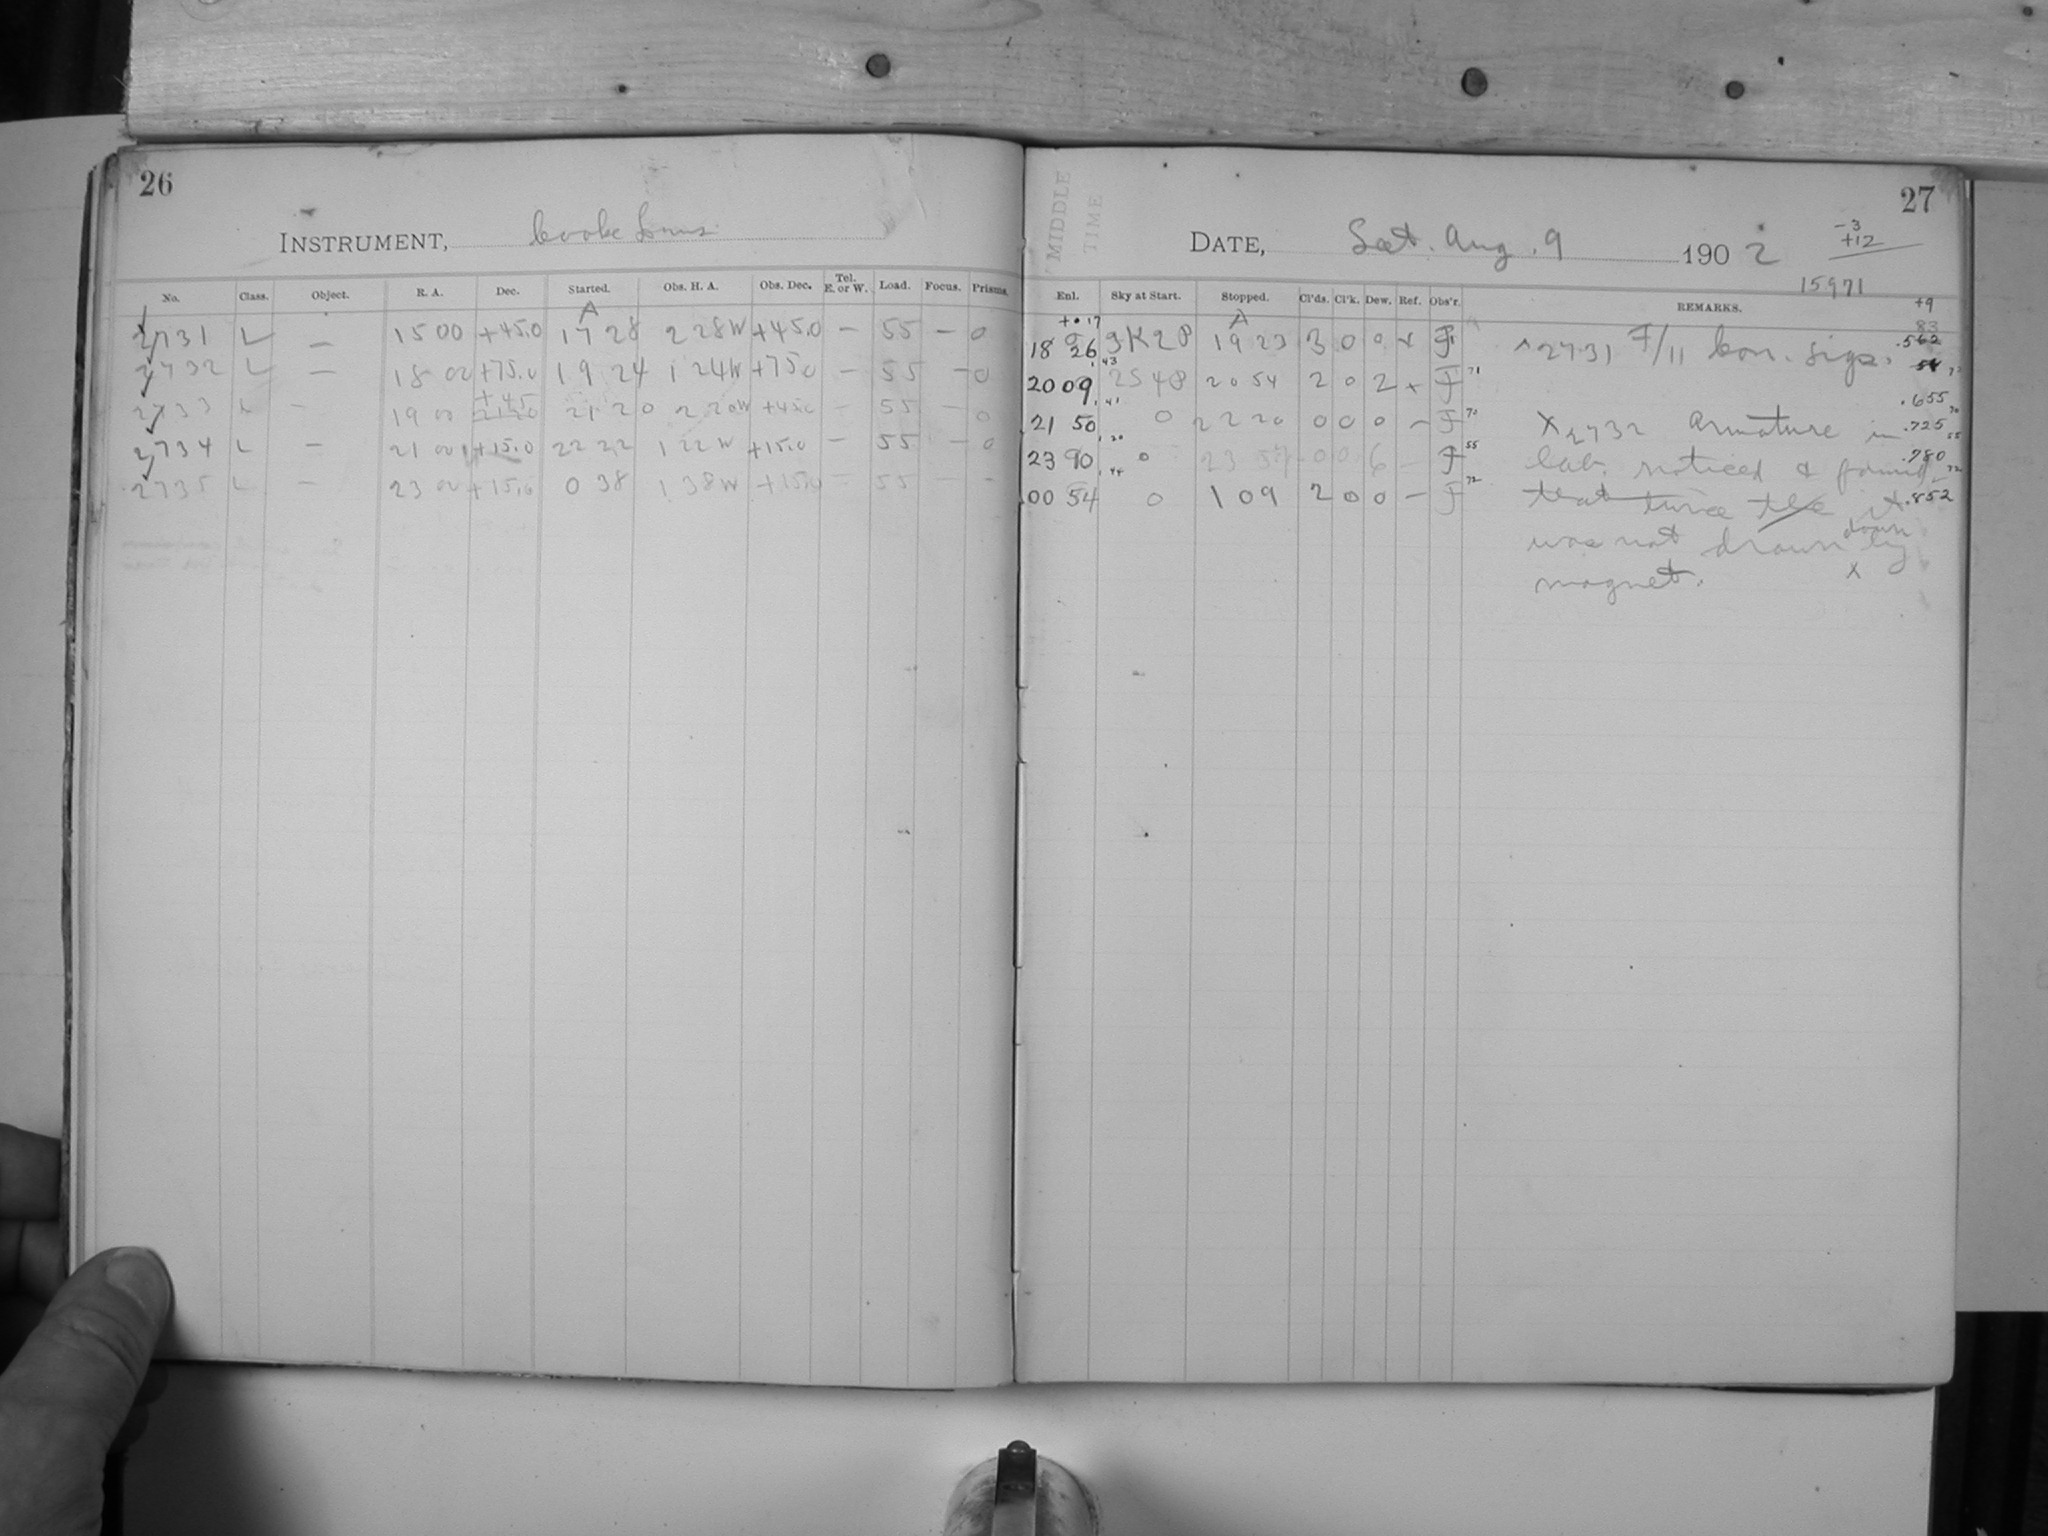 26
INSTRUMENT, Cooke Lens
No. Class. Object. R. A. Dec. Started. Obs. H. A. Obs. Dec. Tel. E. or W. Load. Focus. Prisms.
A
2731 L — 15 00 +45.0 17 28 2 28W +45.0 — 55 — 0
2732 L — 18 00 +75.0 19 24 1 24W +75.0 — 55 — 0
+45
2733 L — 19 00 21 20 2 20W +45.0 — 55 — 0
2734 L — 21 00 +15.0 22 22 1 22W +15.0 — 55 — 0
2735 L — 23 00 +15.0 0 38 1 38W +15.0 — 55 — -
27
MIDDLE TIME
DATE, Sat. Aug. 9 1902
-3
+12
15971
Enl. Sky at Start. Stopped. Cl'ds. Cl'k. Dew. Ref. Obs'r. REMARKS.
+9
83
+.17 A
18 26 3K28 19 23 3 0 0 x F x2731 F/11 Con. sigs. .562
.43
20 09 2548 20 54 2 0 2 x F 71
.655
.41
21 50 0 22 20 0 0 0 — F 70 x2732 Armature in .725
.20
23 90 0 23 57 0 0 6 — F 55 lab. noticed & found .780
.44
00 54 0 1 09 2 0 0 — F 72 that twice the it .852
was not drawn down by
magnet. x